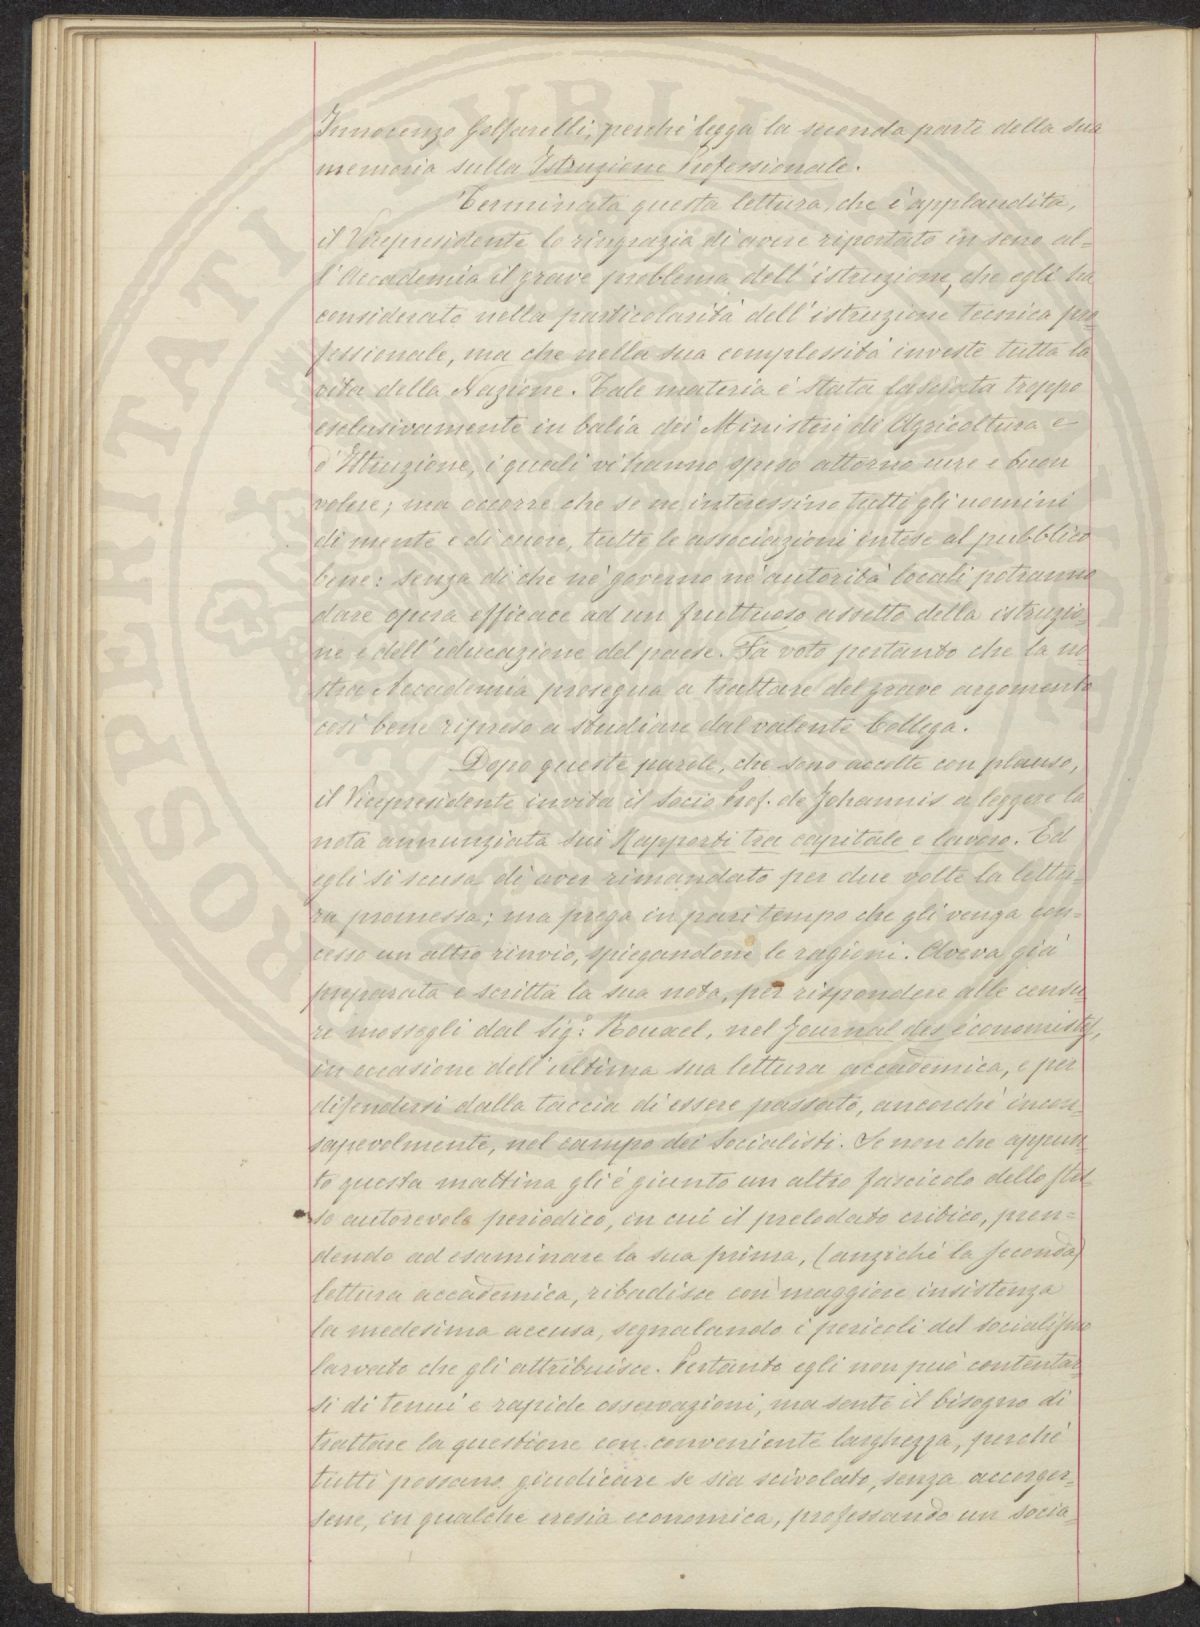 Innocenzo Golfarelli, perchè legga la seconda parte della sua
memoria sulla Istruzione Professionale.
Terminata questa lettura, che è applaudita,
il Vicepresidente lo ringrazia di avere riportato in seno al=
l'Accademia il grave problema dell'istruzione, che egli ha
considerato nella particolarità dell'istruzione tecnica pro=
fessionale, ma che nella sua complessità investe tutta la
vita della Nazione. Tale materia è stata lasciata troppo
esclusivamente in balìa dei Ministeri di Agricoltura e
d'Istruzione, i quali vi hanno speso attorno cure e buon
volere; ma occorre che se ne interessino tutti gli uomini
di mente e di cuore, tutte le associazioni intese al pubblico
bene: senza di che nè governo nè autorità locali potranno
dare opera efficace ad un fruttuoso assetto della istruzio=
ne e dell'educazione del paese. Fa voto pertanto che la no=
stra Accademia prosegua a trattare del grave argomento
così bene ripreso a studiare dal valente Collega.
Dopo queste parole, che sono accolte con plauso,
il Vicepresidente invita il Socio Prof. de Johannis a leggere la
nota annunziata sui Rapporti tra capitale e lavoro. Ed
egli si scusa di aver rimandato per due volte la lettu=
ra promessa; ma prega in pari tempo che gli venga con=
cesso un altro rinvio, spiegandone le ragioni. Aveva già
preparata e scritta la sua nota, per rispondere alle censu=
re mossegli dal Sig.r Rouxel, nel Journal des économistes,
in occasione dell'ultima sua lettura accademica, e per
difendersi dalla taccia di essere passato, ancorchè incon=
sapevolmente, nel campo dei Socialisti. Se non che appun=
to questa mattina gli è giunto un altro fascicolo dello stes=
so autorevole periodico, in cui il prelodato critico, pren=
dendo ad esaminare la sua prima, (anzichè la seconda)
lettura accademica, ribadisce con maggiore insistenza
la medesima accusa, segnalando i pericoli del socialismo
larvato che gli attribuisce. Pertanto egli non può contentar=
si di tenui e rapide osservazioni, ma sente il bisogno di
trattare la questione con conveniente larghezza, perchè
tutti possano giudicare se sia scivolato, senza accorger=
sene, in qualche eresia economica, professando un socia=
PROSPERITATI PUBLICAE